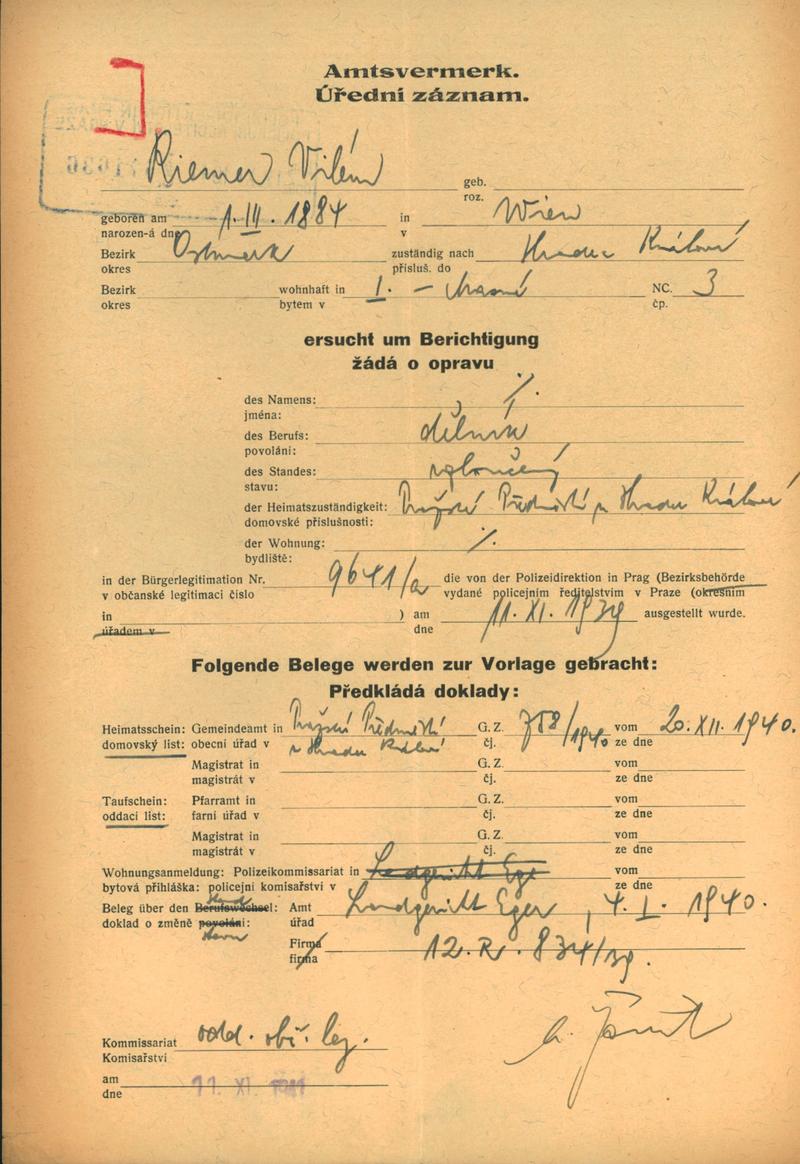 Amtsvermerk.
Úřední záznam.
Riemer Vilém geb.
roz.
geboren am 1. III. 1884 in Wien
narozen-á dne v
Bezirk Ostmark zuständig nach Hradec Králové
okres přísluš. do
Bezirk wohnhaft in I. - NC. 3
okres bytem v čp.
ersucht um Berichtigung
žádá o opravu
des Namens: ·/.
jména:
des Berufs: dělník
povolání:
des Standes: rozloučený
stavu:
der Heimatszuständigkeit: Pražské Předměstí u Hradce Králové
domovské příslušnosti:
der Wohnung: ·/.
bydliště:
in der Bürgerlegitimation Nr. 9641/a die von der Polizeidirektion in Prag (Bezirksbehörde
v občanské legitimaci číslo vydané policejním ředitelstvím v Praze (okresním
in ) am 11. XI. 1939 ausgestellt wurde.
úřadem v dne
Folgende Belege werden zur Vorlage gebracht:
Předkládá doklady:
Heimatsschein: Gemeindeamt in Pražské Předměstí G. Z. 758/1940 vom 20. XII. 1940.
domovský list: obecní úřad v u Hradce Králové čj. ze dne
Magistrat in G. Z. vom
magistrát v čj. ze dne
Taufschein: Pfarramt in G. Z. vom
oddací list: farní úřad v čj. ze dne
Magistrat in G. Z. vom
magistrát v čj. ze dne
Wohnungsanmeldung: Polizeikommissariat in Landgericht Eger vom
bytová přihláška: policejní komisařství v ze dne
Beleg über den Berufswechsel: Amt Landgericht Eger, 4. I. 1940.
doklad o změně povolání: úřad
stavu
Firma 12. R. 834/39.
firma
Kommissariat odd. obč. leg.
Komisařství
am 11. XI. 1941
dne